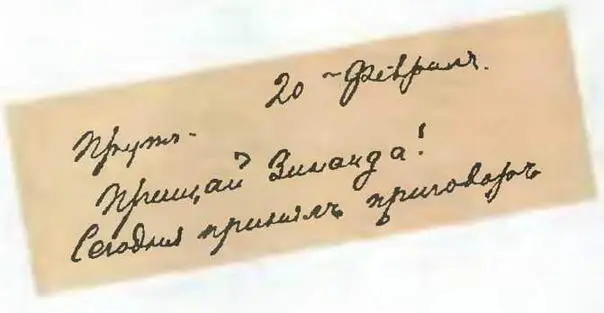 20 - Февраль.
Прутъ.
Прощай Зинаида!
Сегодня принялъ приговоръ